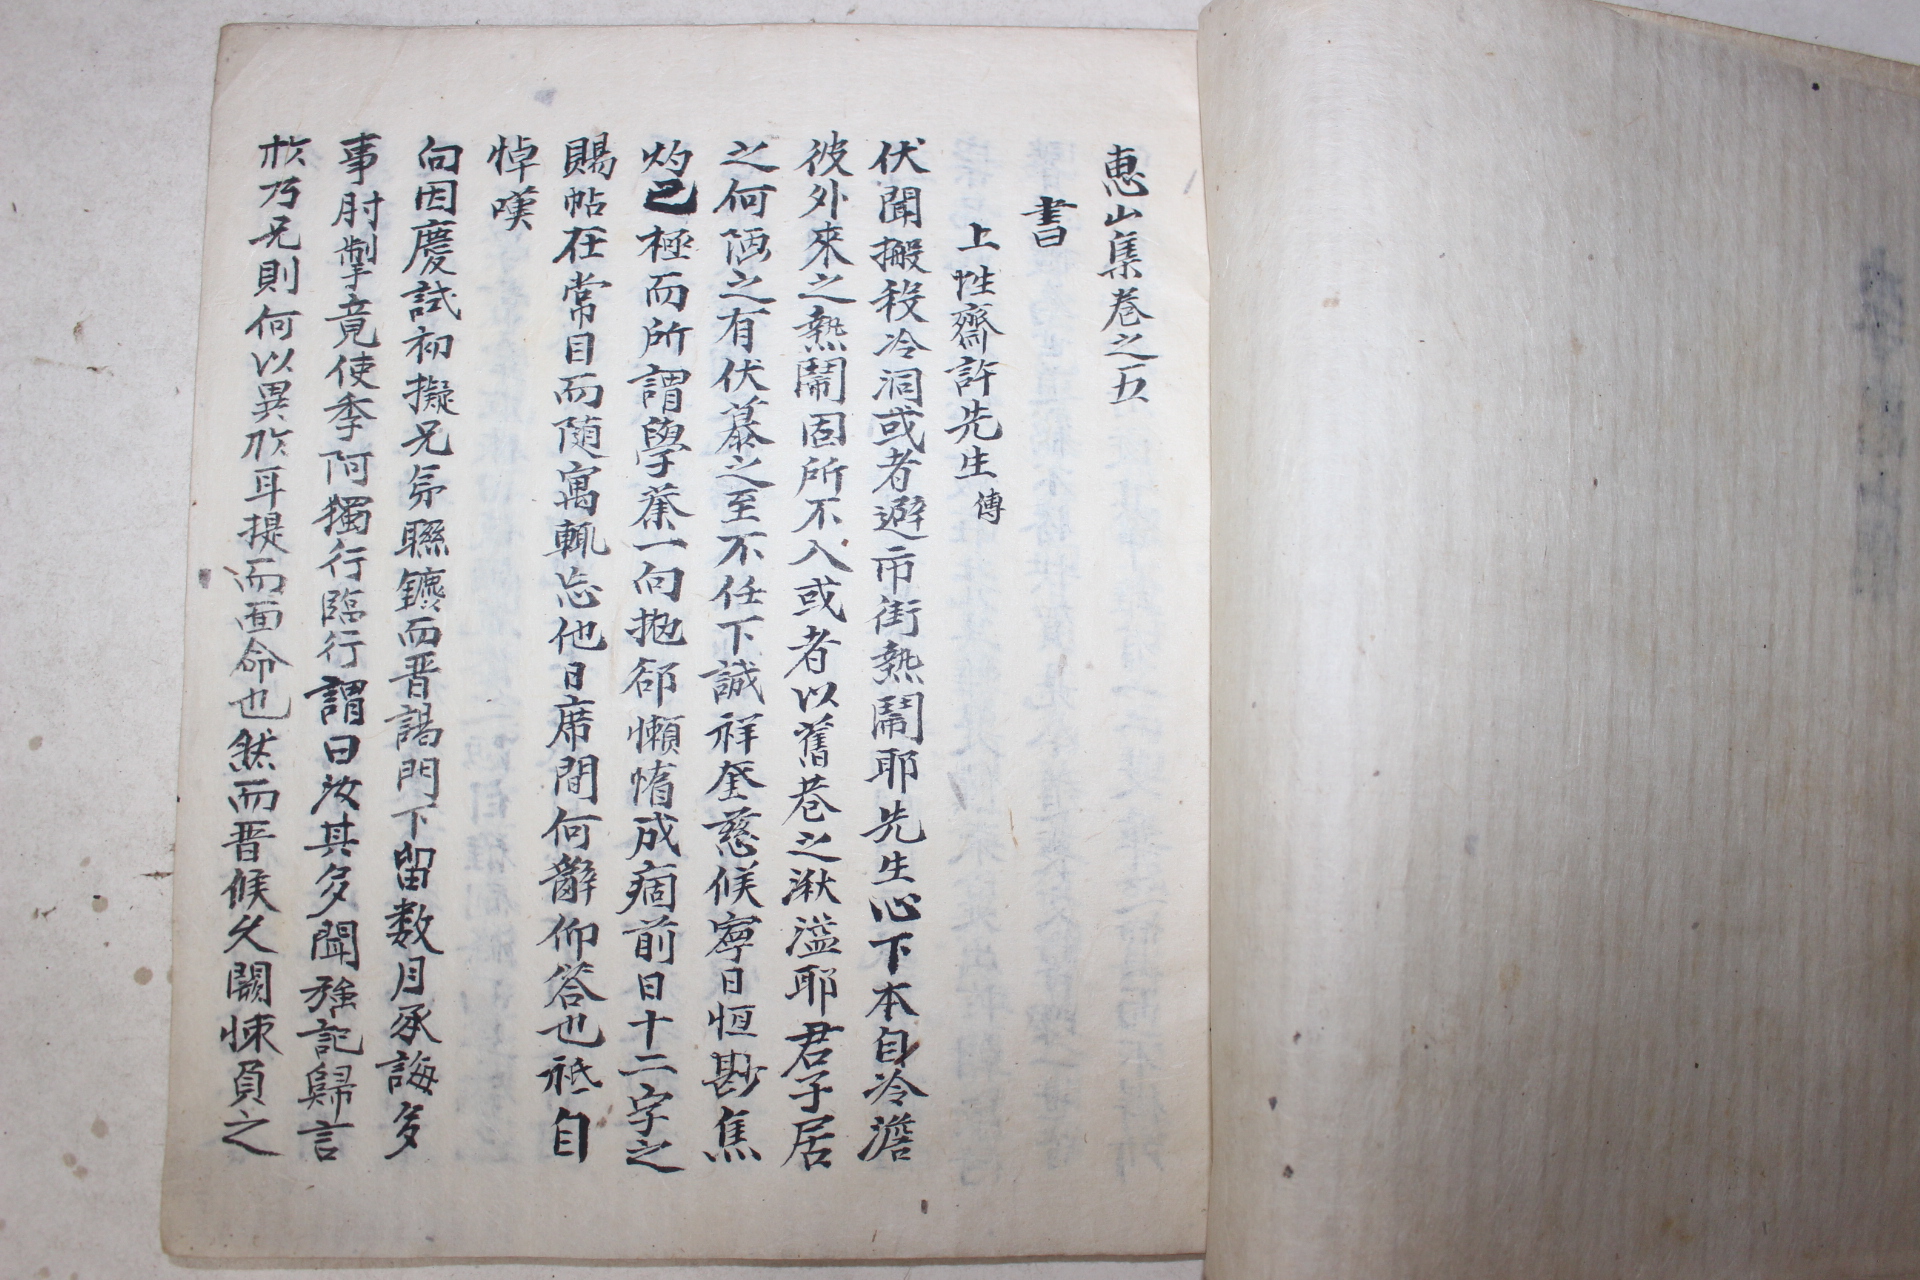 惠山集卷之五
書
上性齋許先生傳
伏聞搬移冷洞或者避市街熱鬧耶先生心下本自冷澹
彼外來之熱鬧固所不入或者以舊巷之湫溢耶君子居
之何陋之有伏慕之至不任下誠祥奎慈候寧日恒尠焦
灼已極而所謂學業一向抛郤懶惰成痼前日十二字之
賜帖在常目而隨寓輒忘他日席間何辭仰答也祗自
悼嘆
向因慶試初擬兄弟聯鑣而晋謁門下留數月承誨多
事肘掣竟使季阿獨行臨行謂曰汝其多聞强記歸言
於乃兄則何以異於耳提而面命也然而晋候久闕悚負之